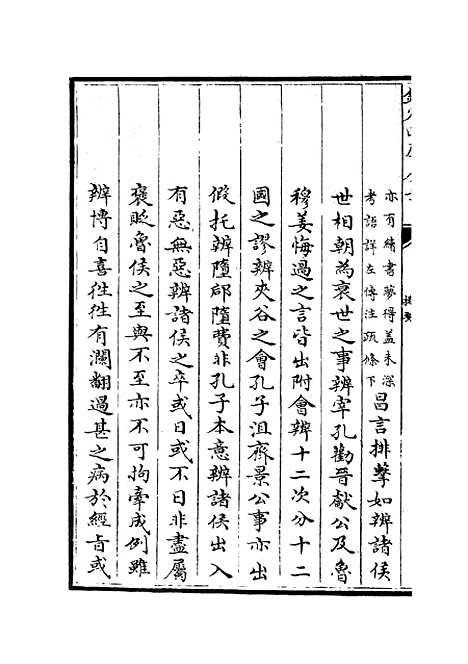 亦有緒書夢得盖未深
考語詳左傳注疏條下
昌言排擊如辨諸侯
世相朝為衰世之事辨宰孔勸晉獻公及魯
穆姜悔過之言皆出附會辨十二次分十二
國之謬辨夾谷之會孔子沮齊景公事亦出
假托辨墮郈墮費非孔子本意辨諸侯出入
有惡無惡辨諸侯之卒或日或不日非盡屬
褒貶魯侯之至與不至亦不可拘牽成例雖
辨博自喜往往有瀾翻過甚之病於經旨或